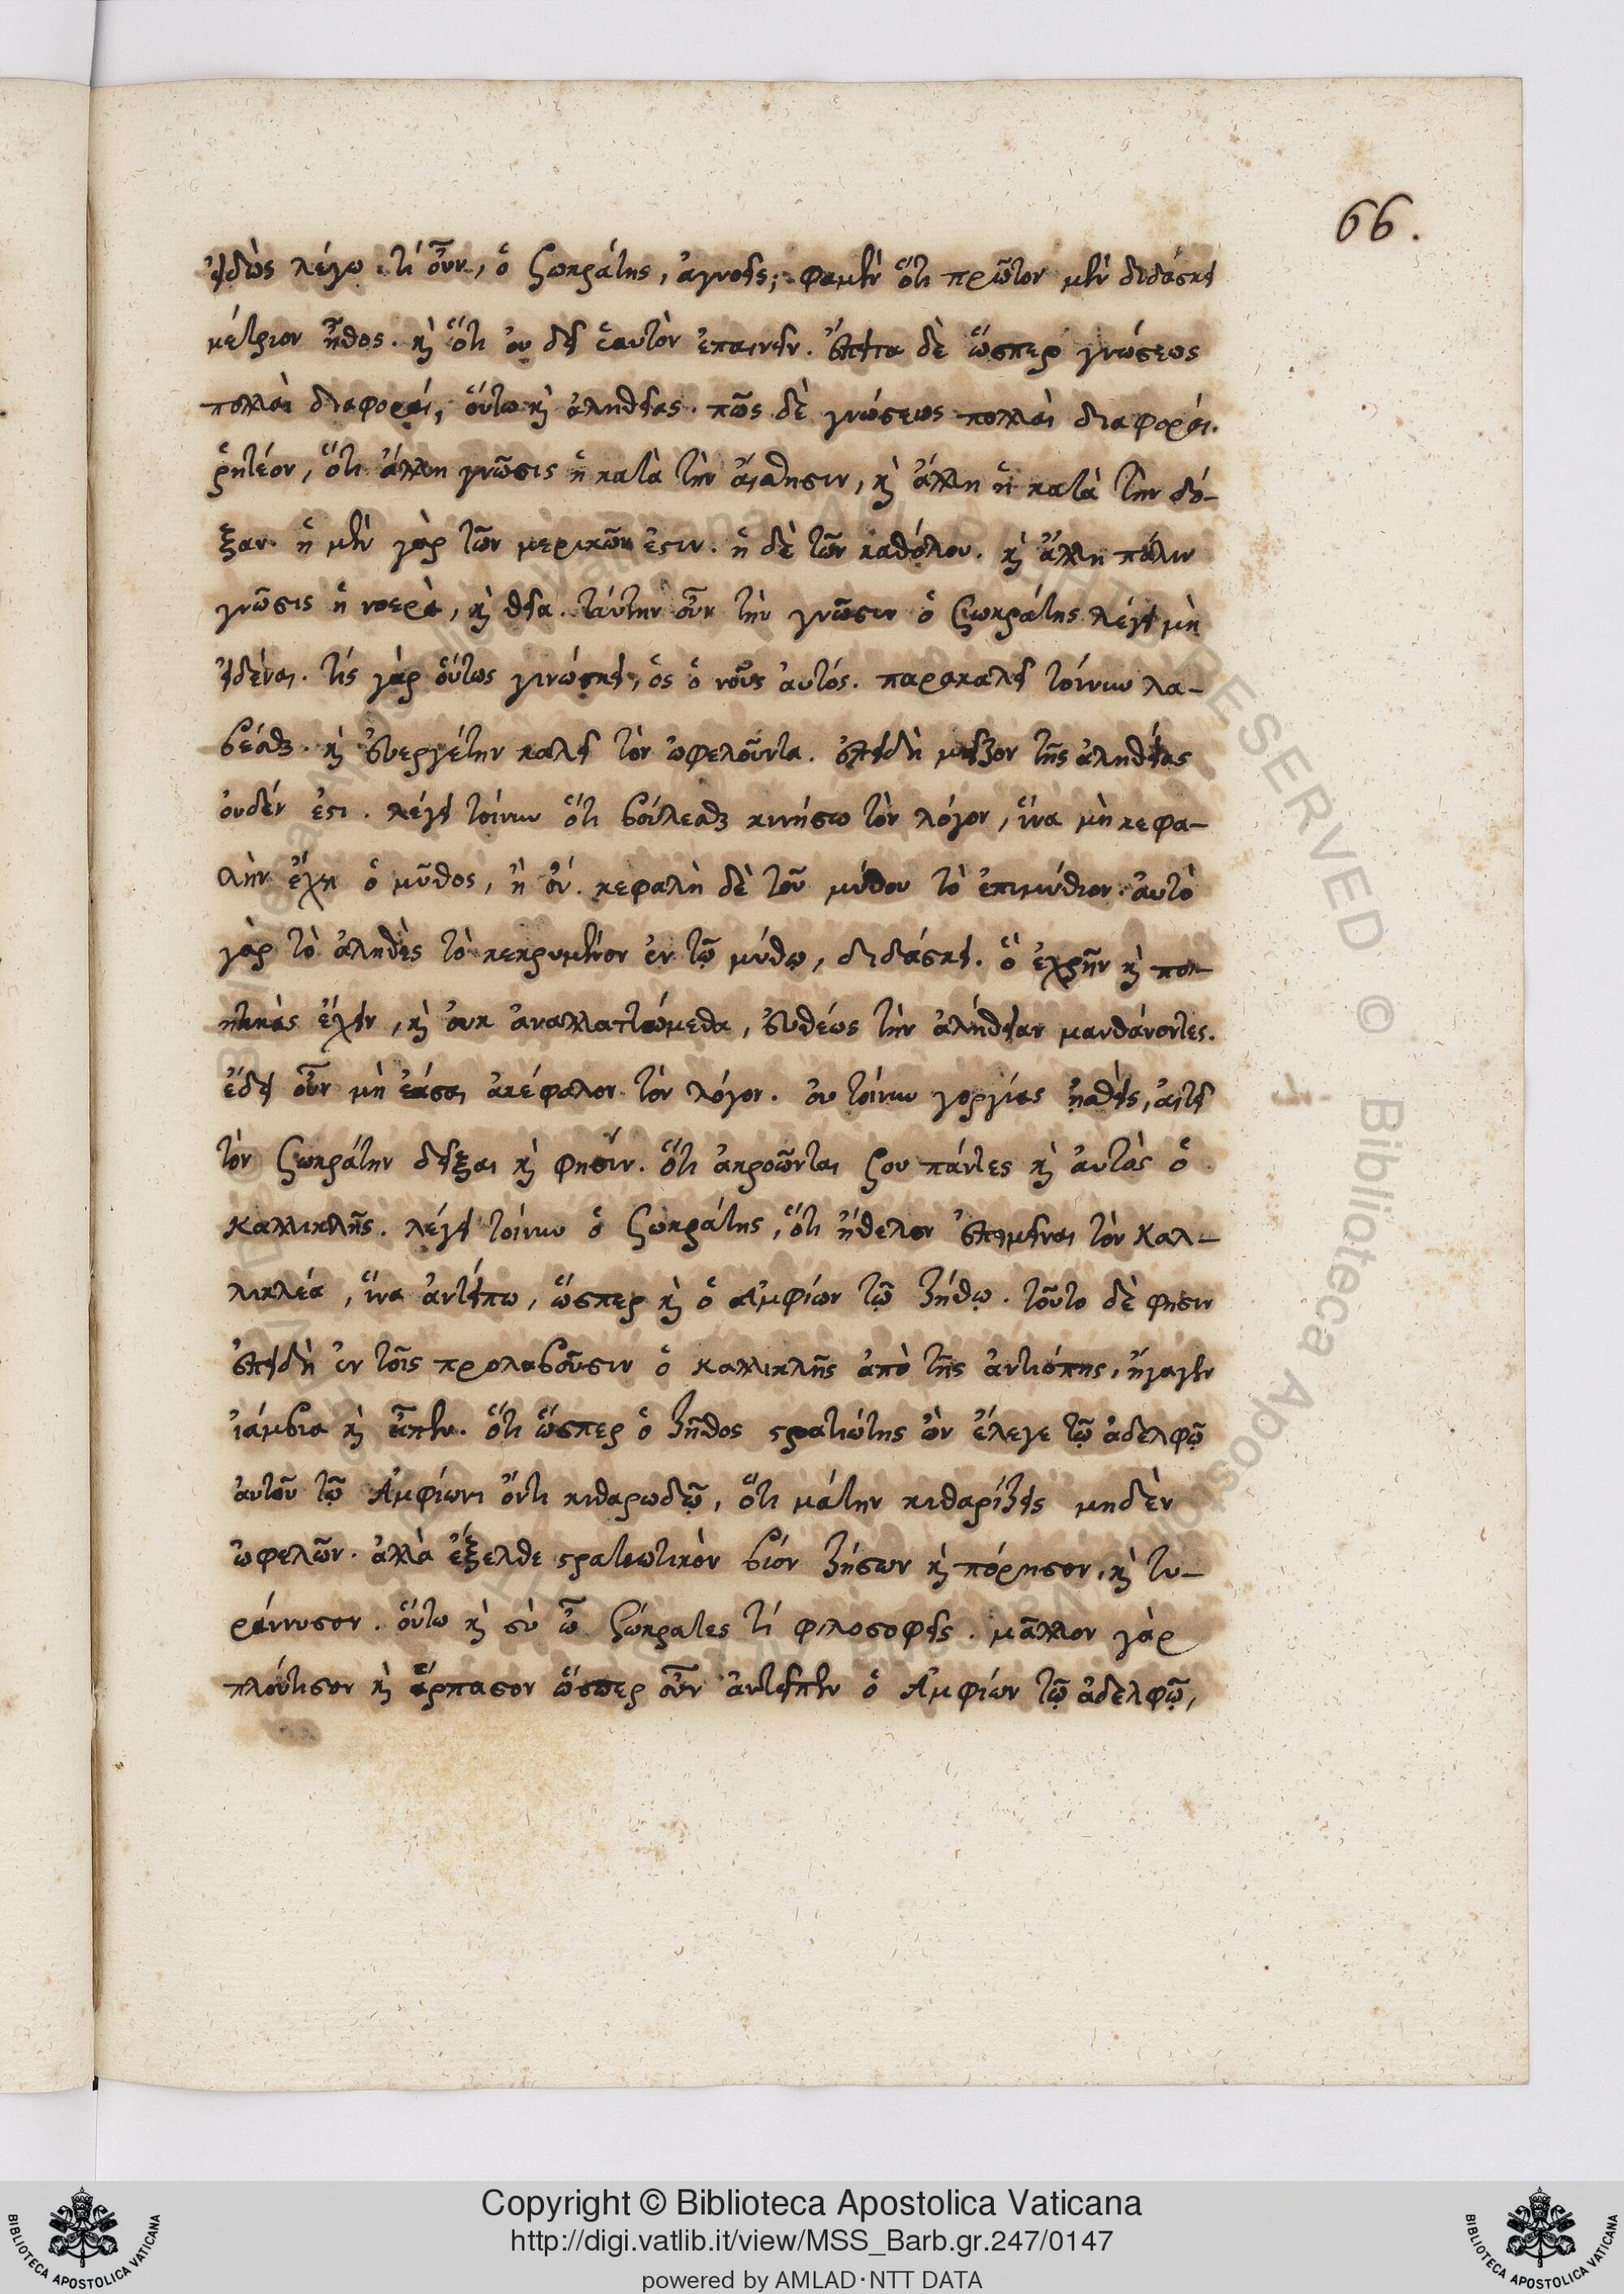 66.
εἰδὼς λέγω. τί οὖν, ὁ Σωκράτης, ἀγνοεῖς; φαμὲν ὅτι πρῶτον μὲν διδάσκει
μέτριον ἦθος. καὶ ὅτι οὐ δεῖ ἑαυτὸν ἐπαινεῖν. ἔπειτα δὲ ὥσπερ γνώσεως
πολλαὶ διαφοραί, οὕτω καὶ ἀληθείας. πῶς δὲ γνώσεως πολλαὶ διαφοραί.
ῥητέον, ὅτι ἄλλη γνῶσις ἡ κατὰ τὴν αἴσθησιν, καὶ ἄλλη ἡ κατὰ τὴν δό-
ξαν. ἡ μὲν γὰρ τῶν μερικῶν ἐστιν. ἡ δὲ τῶν καθόλου. καὶ ἄλλη πάλιν
γνῶσις ἡ νοερὰ, καὶ θεία. ταύτην οὖν τὴν γνῶσιν ὁ Σωκράτης λέγει μὴ
εἰδέναι. τίς γὰρ οὕτως γινώσκει, ὡς ὁ νοῦς αὐτός. παρακαλεῖ τοίνυν λα-
βέσθαι. καὶ εὐεργέτην καλεῖ τὸν ὠφελοῦντα. ἐπειδὴ μεῖζον τῆς ἀληθείας
οὐδέν ἐστι. λέγει τοίνυν ὅτι βούλεσθαι κινήσω τὸν λόγον, ἵνα μὴ κεφα-
λὴν ἔχῃ ὁ μῦθος, ἢ οὔ. κεφαλὴ δὲ τοῦ μύθου τὸ ἐπιμύθιον. αὐτὸ
γὰρ τὸ ἀληθὲς τὸ κεκρυμμένον ἐν τῷ μύθῳ, διδάσκει. ὃ ἐχρῆν καὶ ποι-
ητικὰς ἔχειν, καὶ οὐκ ἀναπλαττώμεθα, εὐθέως τὴν ἀλήθειαν μανθάνοντες.
ἔδει οὖν μὴ ἐάσαι ἀκέφαλον τὸν λόγον. οὐ τοίνυν γοργίας αἰτεῖ
τὸν Σωκράτην δεῖξαι καὶ φησίν. ὅτι ἀκροῶνται σου πάντες καὶ αὐτὸς ὁ
καλλικλῆς. λέγει τοίνυν ὁ Σωκράτης, ὅτι ἤθελον ἐπιμεῖναι τὸν Καλ-
λικλέα, ἵνα ἀντείπω, ὥσπερ καὶ ὁ Ἀμφίων τῷ ζήθῳ. τοῦτο δὲ φησιν
ἐπειδὴ ἐν τοῖς προλαβοῦσιν ὁ καλλικλῆς ἀπὸ τῆς ἀντιόπης, ἤγαγεν
ἰάμβια καὶ εἶπεν. ὅτι ὥσπερ ὁ ζῆθος στρατιώτης ὢν ἔλεγε τῷ ἀδελφῷ
αὐτοῦ τῷ Ἀμφίωνι ὄντι κιθαρωδῷ, ὅτι μάτην κιθαρίζεις μηδὲν
ὠφελῶν. ἀλλὰ ἔξελθε στρατιωτικὸν βίον ζήσων καὶ πόρησον, καὶ τυ-
ράννυσον. οὕτω καὶ σὺ ὦ Σώκρατες τί φιλοσοφεῖς. μᾶλλον γὰρ
πλούτισον καὶ ἅρπασον ὥσπερ οὖν ἀντεῖπεν ὁ Ἀμφίων τῷ ἀδελφῷ,
Copyright © Biblioteca Apostolica Vaticana
http://digi.vatlib.it/view/MSS_Barb.gr.247/0147
powered by AMLAD·NTT DATA
BIBLIOTECA APOSTOLICA VATICANA
BIBLIOTECA APOSTOLICA VATICANA